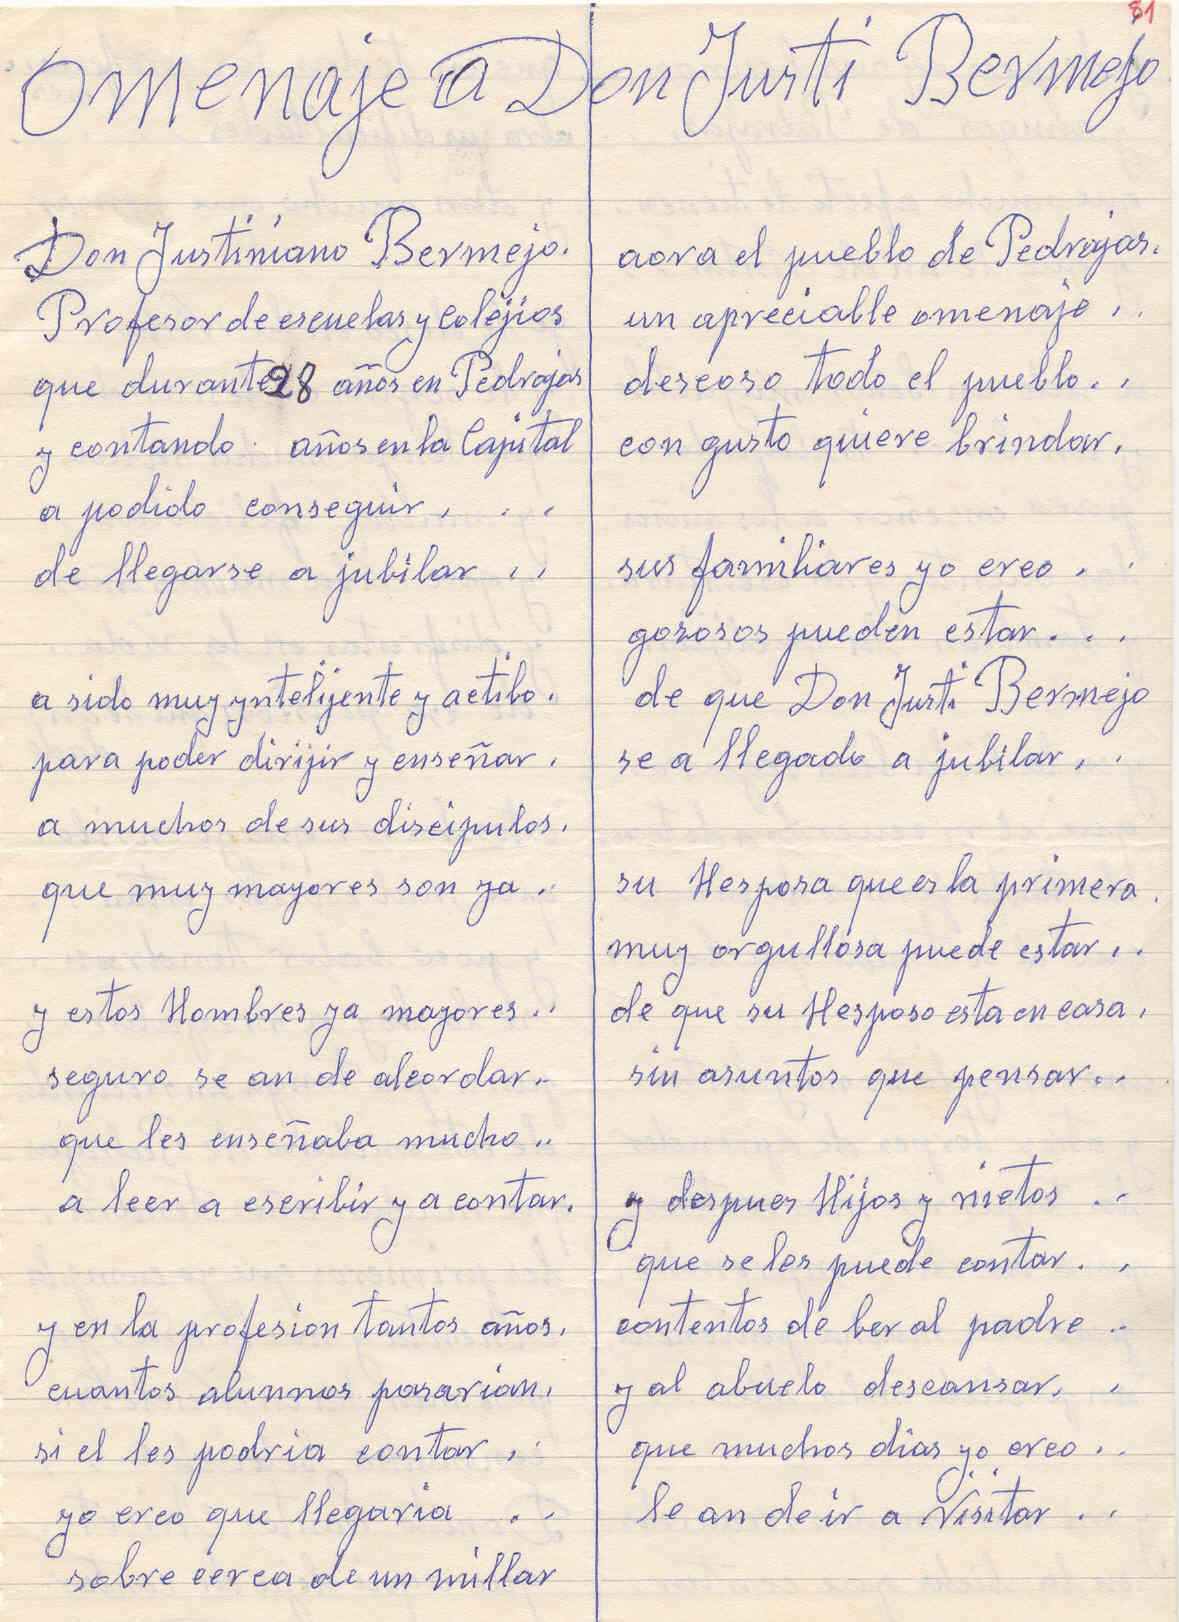 81
Omenaje a Don Justi Bermejo
Don Justiniano Bermejo.
Profesor de escuelas y colejios
que durante 28 años en Pedrajas
y contando . años en la Capital
a podido conseguir, . .
de llegarse a jubilar , ,
a sido muy yntelijente y actibo .
para poder dirijir y enseñar .
a muchos de sus discipulos.
que muy mayores son ya ..
y estos Hombres ya mayores ..
seguro se an de alcordar..
que les enseñaba mucho ..
a leer a escribir y a contar.
y en la profesion tantos años.
cuantos alunnos pasarian.
si el les podria contar , .
yo creo que llegaria . .
sobre cerca de un millar
aora el pueblo de Pedrajas.
un apreciable omenaje . .
deseoso todo el pueblo. .
con gusto quiere brindar.
sus familiares yo creo . .
gozosos pueden estar . . .
de que Don Justi Bermejo
se a llegado a jubilar , .
su Hesposa que es la primera .
muy orgullosa puede estar . .
de que su Hesposo esta en casa .
sin asuntos que pensar..
y despues Hijos y nietos ..
que se les puede contar . .
contentos de ber al padre ..
y al abuelo descansar. .
que muchos dias yo creo ..
le an de ir a visitar . .